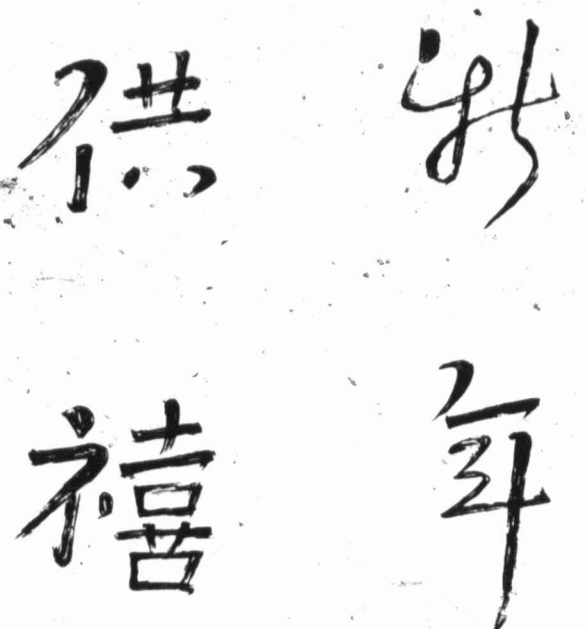 新年
供禧